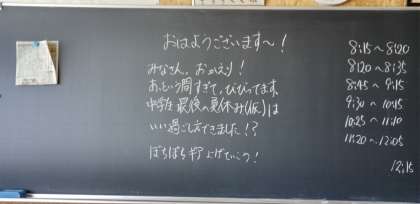 おはようございます〜!
みなさん、おかえり!
あっという間すぎて、びびってます
中学生最後の夏休み(仮)は
いい過ごし方できました!?
ぼちぼちギア上げていこう!
8:15〜8:20
8:20〜8:35
8:45〜9:15
9:30〜10:15
10:25〜11:10
11:20〜12:05
12:15